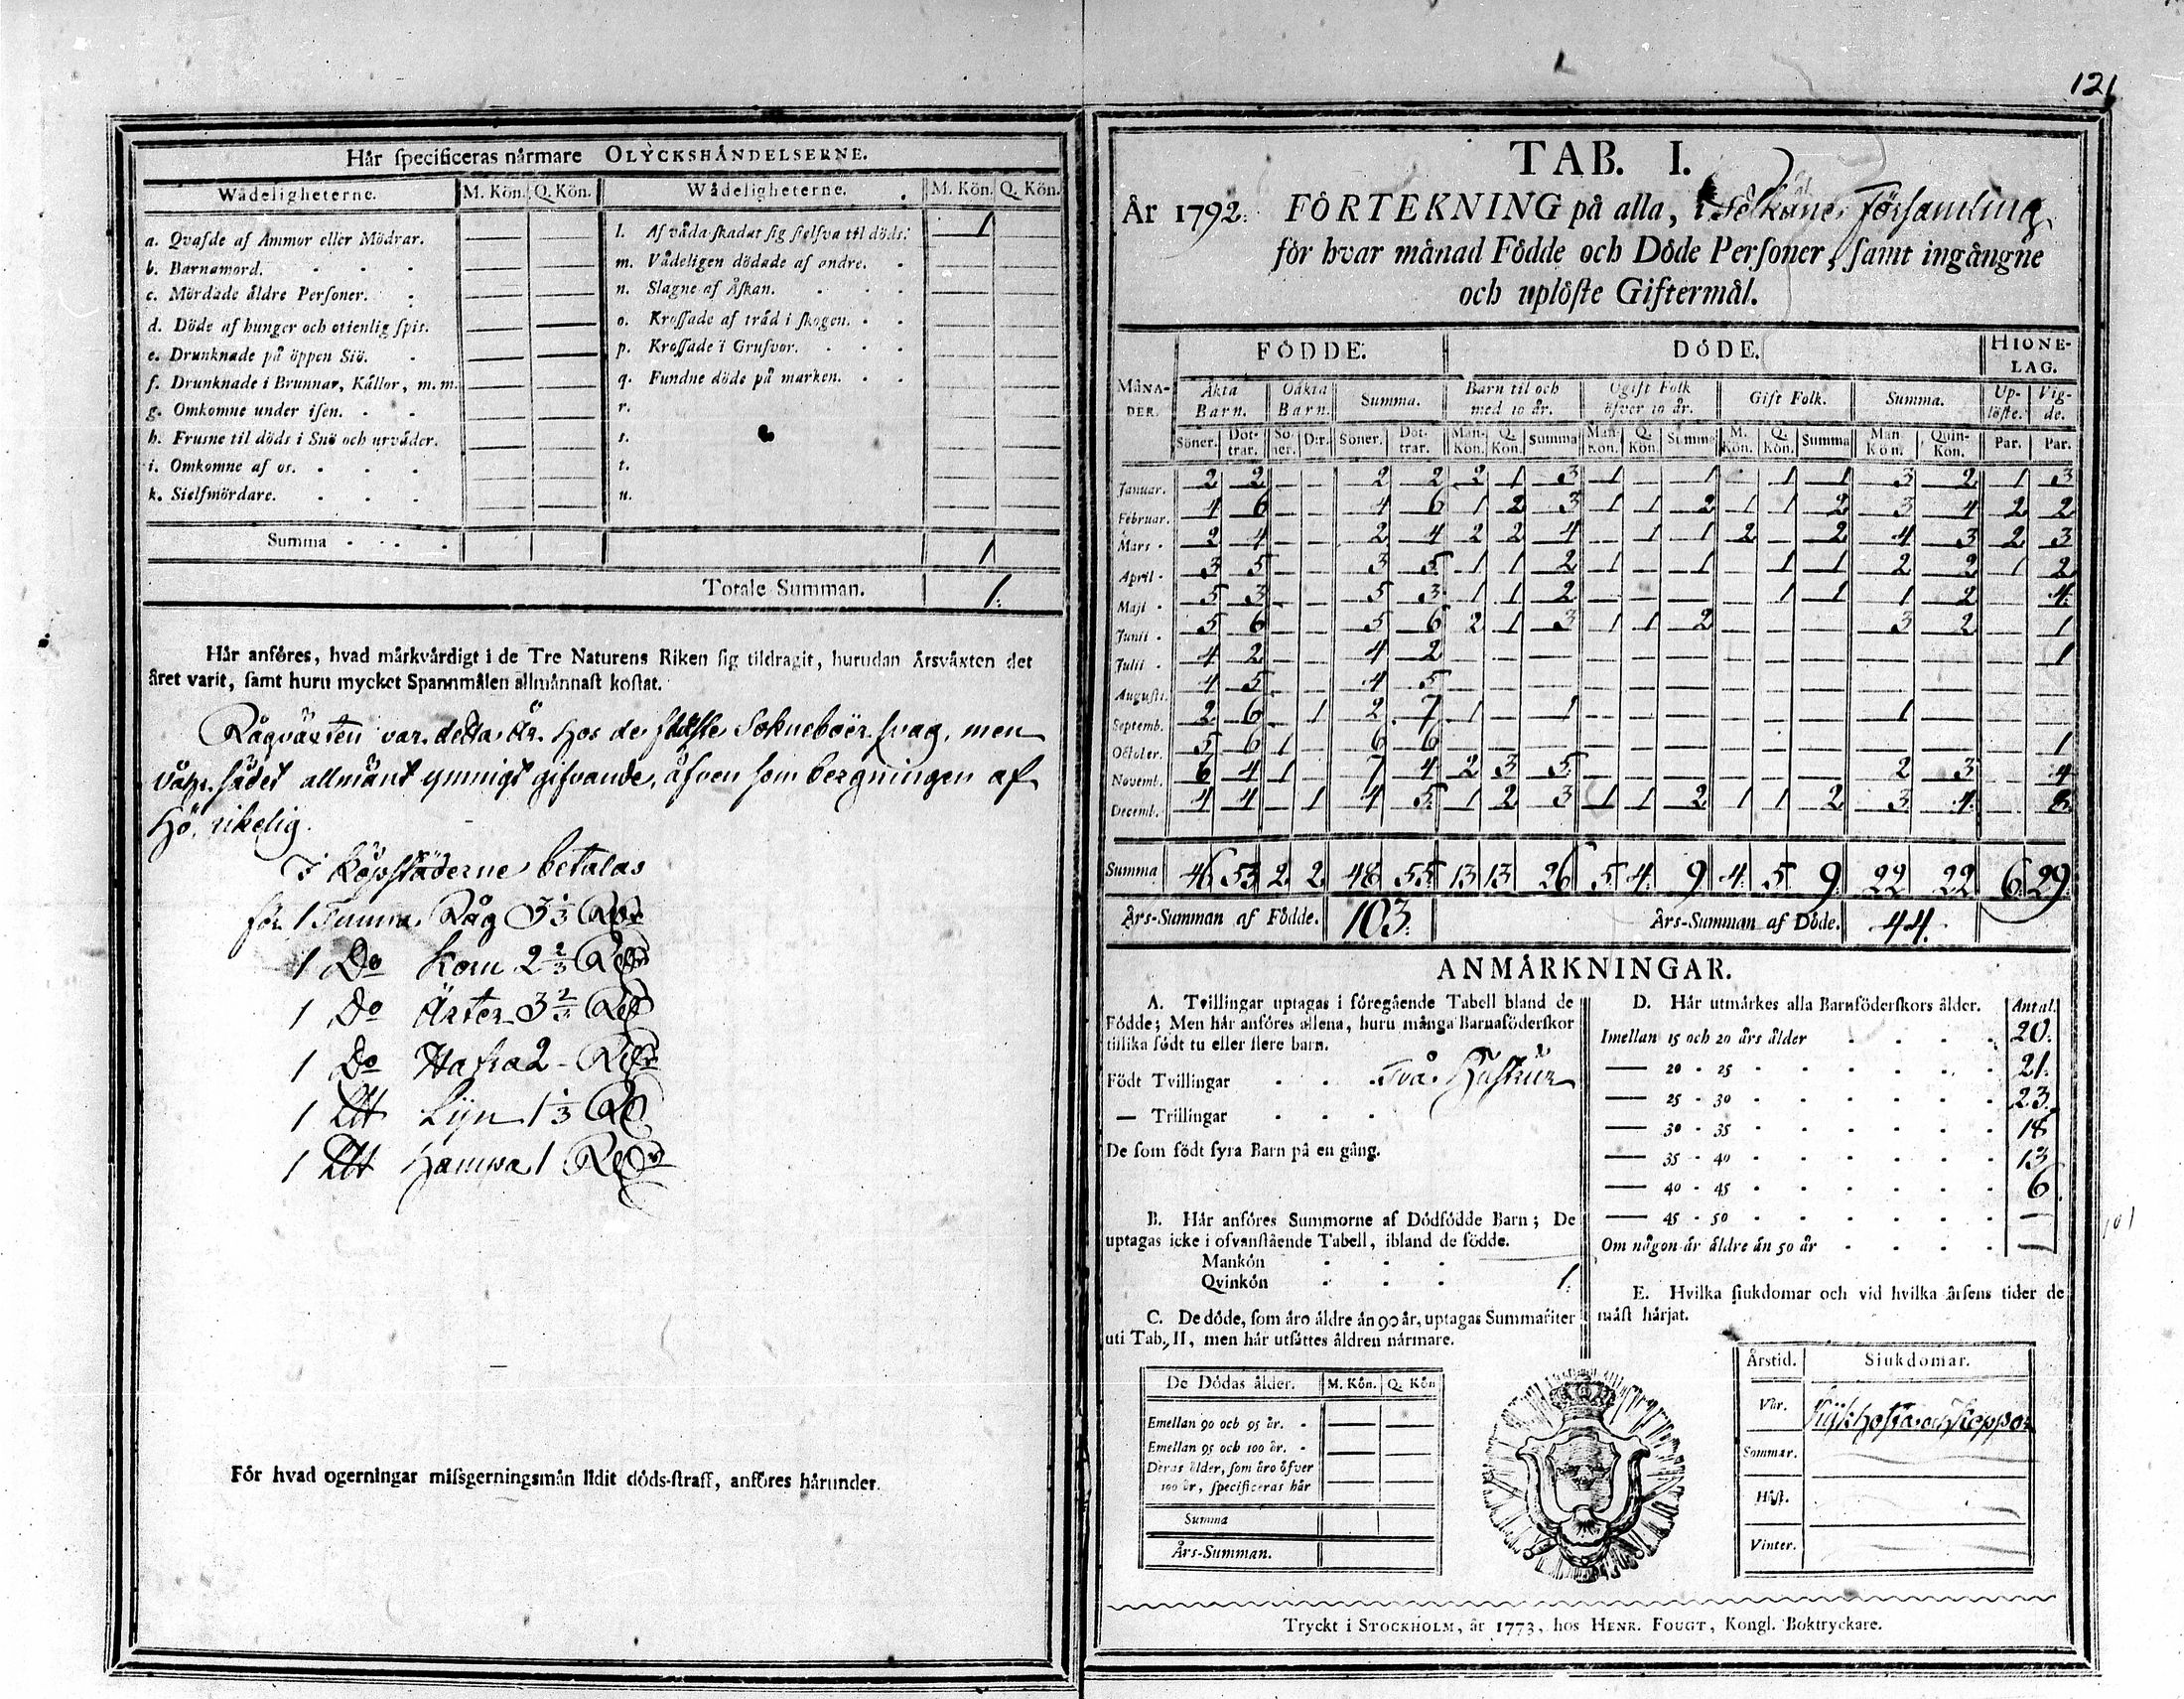 121
Hår ſpecificeras nårmare OLYCKSHÅNDELSERNE.
Wådeligheterne. M. Kön. Q. Kön. Wådeligheterne. M. Kön. Q. Kön.
a. Qvafde af Ammor eller Mödrar. — — l. Af våda ſkadat ſig ſielfva til döds. 1 —
b. Barnamord. — — m. Vådeligen dödade af andre. — —
c. Mördade åldre Perſoner. — — n. Slagne af Åſkan. — —
d. Döde af hunger och otienlig ſpis. — — o. Kroſſade af tråd i ſkogen. — —
e. Drunknade på öppen Siö. — — p. Kroſſade i Grufvor. — —
f. Drunknade i Brunnar, Kållor, m. m. — — q. Fundne döde på marken. — —
g. Omkomne under iſen. — — r. — —
h. Fruſne til döds i Snö och urvåder. — — s. — —
i. Omkomne af os. — — t. — —
k. Sielfmördare. — — u. — —
Summa 1
Totale Summan. 1.
Hår anföres, hvad mårkvårdigt i de Tre Naturens Riken ſig tildragit, hurudan Årsvåxten det
året varit, ſamt huru mycket Spannmålen allmånnaſt koſtat.
Rågväxten var detta År hos de fläſte Sokneboer ſvag, men
ſådet allmänt ymnigt gifvande, äfven ſom bergningen af
Hö, rikelig.
I Köpſtäderne betalas
för 1 Tunna Råg 3 1/3 Rdr
1 Do Korn 2 2/3 Rdr
1 Do Ärter 3 2/3 Rdr
1 Do Hafra 2 - Rdr
1 Ltt Lijn 1 1/3 Rd
1 Ltt Hampa 1 Rdr
För hvad ogerningar miſsgerningsmån lidit döds-ſtraff, anföres hårunder.
TAB. I.
År 1792. FÖRTEKNING på alla, i Församling
för hvar månad Födde och Döde Perſoner, ſamt ingångne
och uplöſte Giftermål.
MÅNA-DER. FÖDDE. DÖDE. HIONE-LAG.
Åkta Barn. Oåkta Barn. Summa. Barn til och med 10 år. Ogift Folk öfver 10 år. Gift Folk. Summa. Up-löſte. Vig-de.
Söner. Döt-trar. Sö-ner. D:r. Söner. Döt-trar. Man-Kön. Q. Kön. Summa Man. Kön. Q. Kön. Summa M. Kön. Q. Kön. Summa Man Kön. Quin-Kön. Par. Par.
Januar. 2 2 — — 2 2 2 1 3 1 — 1 — 1 1 3 2 1 3
Februar. 4 6 — — 4 6 1 2 3 1 1 2 1 1 2 3 4 2 2
Mars 2 4 — — 2 4 2 2 4 — 1 1 2 — 2 4 3 2 3
April 3 5 — — 3 5 1 1 2 1 — 1 — 1 1 2 2 1 2
Maji 5 3 — — 5 3 1 1 2 — — — — 1 1 1 2 — 4
Junii 5 6 — — 5 6 2 1 3 1 1 2 — — — 3 2 — 1
Julii 4 2 — — 4 2 — — — — — — — — — — — — 1
Auguſti. 4 5 — — 4 5 — — — — — — — — — — — — —
Septemb. 2 6 — 1 2 7 1 — 1 — — — — — — 1 — — —
October. 5 6 1 — 6 6 — — — — — — — — — — — — 1
Novemb. 6 4 1 — 7 4 2 3 5 — — — — — — 2 3 — 4
Decemb. 4 4 — 1 4 5 1 2 3 1 1 2 1 1 2 3 4 — 8
Summa 46 53 2 2 48 55 13 13 26 5 4 9 4 5 9 22 22 6 29
Års-Summan af Födde. 103. Års-Summan af Döde. 44.
ANMÅRKNINGAR.
A. Tvillingar uptagas i föregående Tabell bland de
Födde; Men hår anföres allena, huru många Barnaföderſkor
tillika födt tu eller flere barn.
Födt Tvillingar Två Huſtrür
— Trillingar
De ſom födt fyra Barn på en gång.
B. Hår anföres Summorne af Dödfödde Barn; De
uptagas icke i ofvanſtående Tabell, ibland de födde.
Mankön —
Qvinkön 1.
C. De döde, ſom åro åldre ån 90 år, uptagas Summariter
uti Tab. II, men hår utſåttes åldren nårmare.
De Dödas ålder. M. Kön. Q. Kön
Emellan 90 och 95 år. — —
Emellan 95 och 100 år. — —
Deras ålder, ſom åro öfver
100 år, ſpecificeras hår — —
Summa
Års-Summan.
D. Hår utmårkes alla Barnföderſkors ålder. Antal.
Imellan 15 och 20 års ålder 20.
— 20 - 25 21.
— 25 - 30 23.
— 30 - 35 18
— 35 - 40 13
— 40 - 45 6
— 45 - 50 —
Om någon år åldre ån 50 år —
101
E. Hvilka ſiukdomar och vid hvilka årſens tider de
måſt hårjat.
Årstid. Siukdomar.
Vår. Kikhosta och Koppor
Sommar.
Höſt.
Vinter.
Tryckt i STOCKHOLM, år 1773, hos HENR. FOUGT, Kongl. Boktryckare.